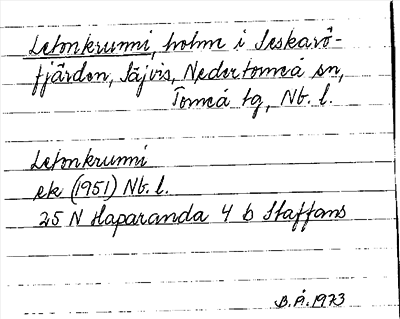 Letonkrunni, holm i Seskarö-
fjärden, Säjvis, Nedertorneå sn,
Torneå tg, Nb. l.
Letonkrunni
ek (1951) Nb. l.
25 N Haparanda 4 b Staffans
B.Å. 1973